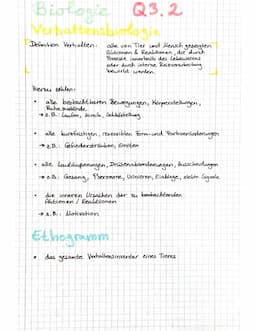 Biologie Q3.2
Verhaltensbiologie
Definition Verhalten: alle von Tier und Mensch gezeigten
Aktionen & Reaktionen, die durch
Prozesse innerhalb des Lebewesens
oder durch interne Reizverarbeitung
bewirkt werden.
Hierzu zählen:
• alle beobachtbaren Bewegungen, Körperstellungen,
Ruhezustände
→ z.B.: Laufen, Schlafstellung
• alle kurzfristigen, reversiblen Form- und Farbveränderungen
→ z.B.: Gefiedersträuben, Erröten
• alle Lautäußerungen, Drüsenabsonderungen, Ausscheidungen
→ z.B.: Gesang, Pheromone, Urinieren, elektr. Signale
• die inneren Ursachen der zu beobachtenden
Aktionen / Reaktionen
→ z.B.: Motivation
Ethogramm
• das gesamte Verhaltensinventar eines Tieres